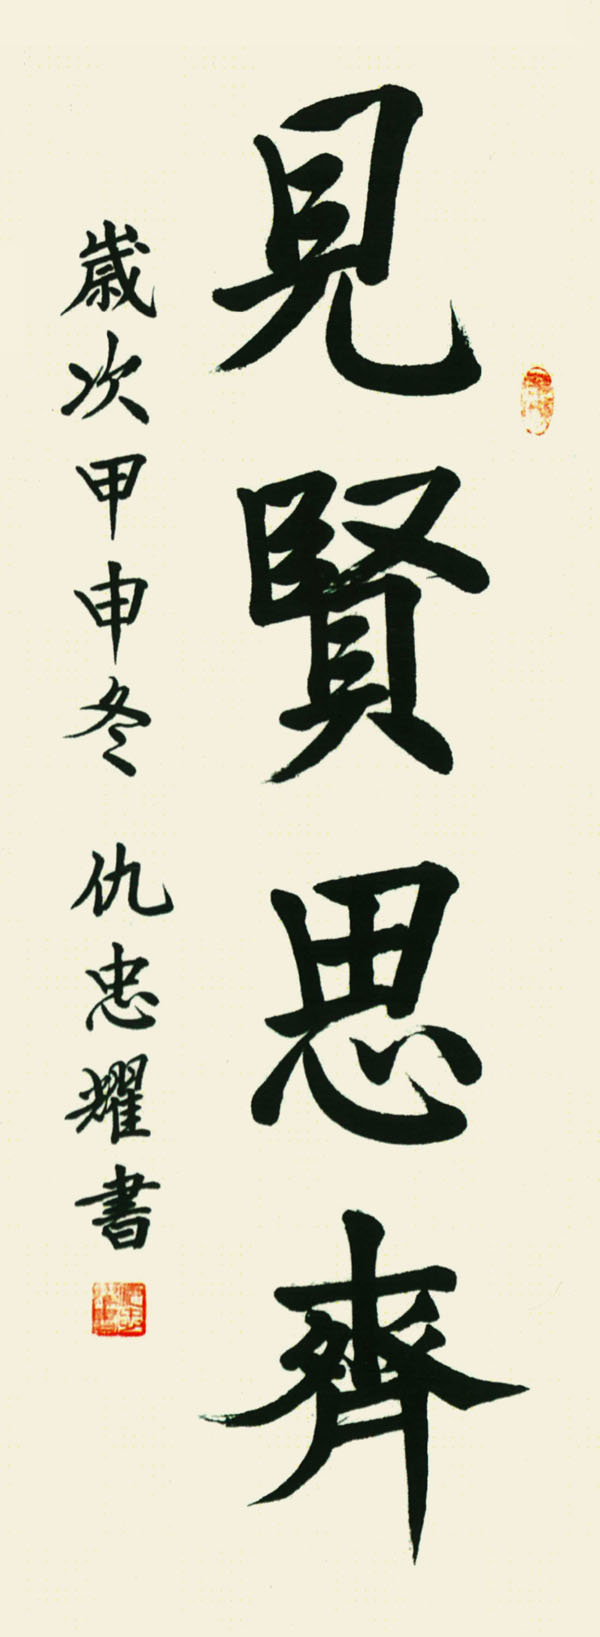 見賢思齊
歲次甲申冬 仇忠耀書